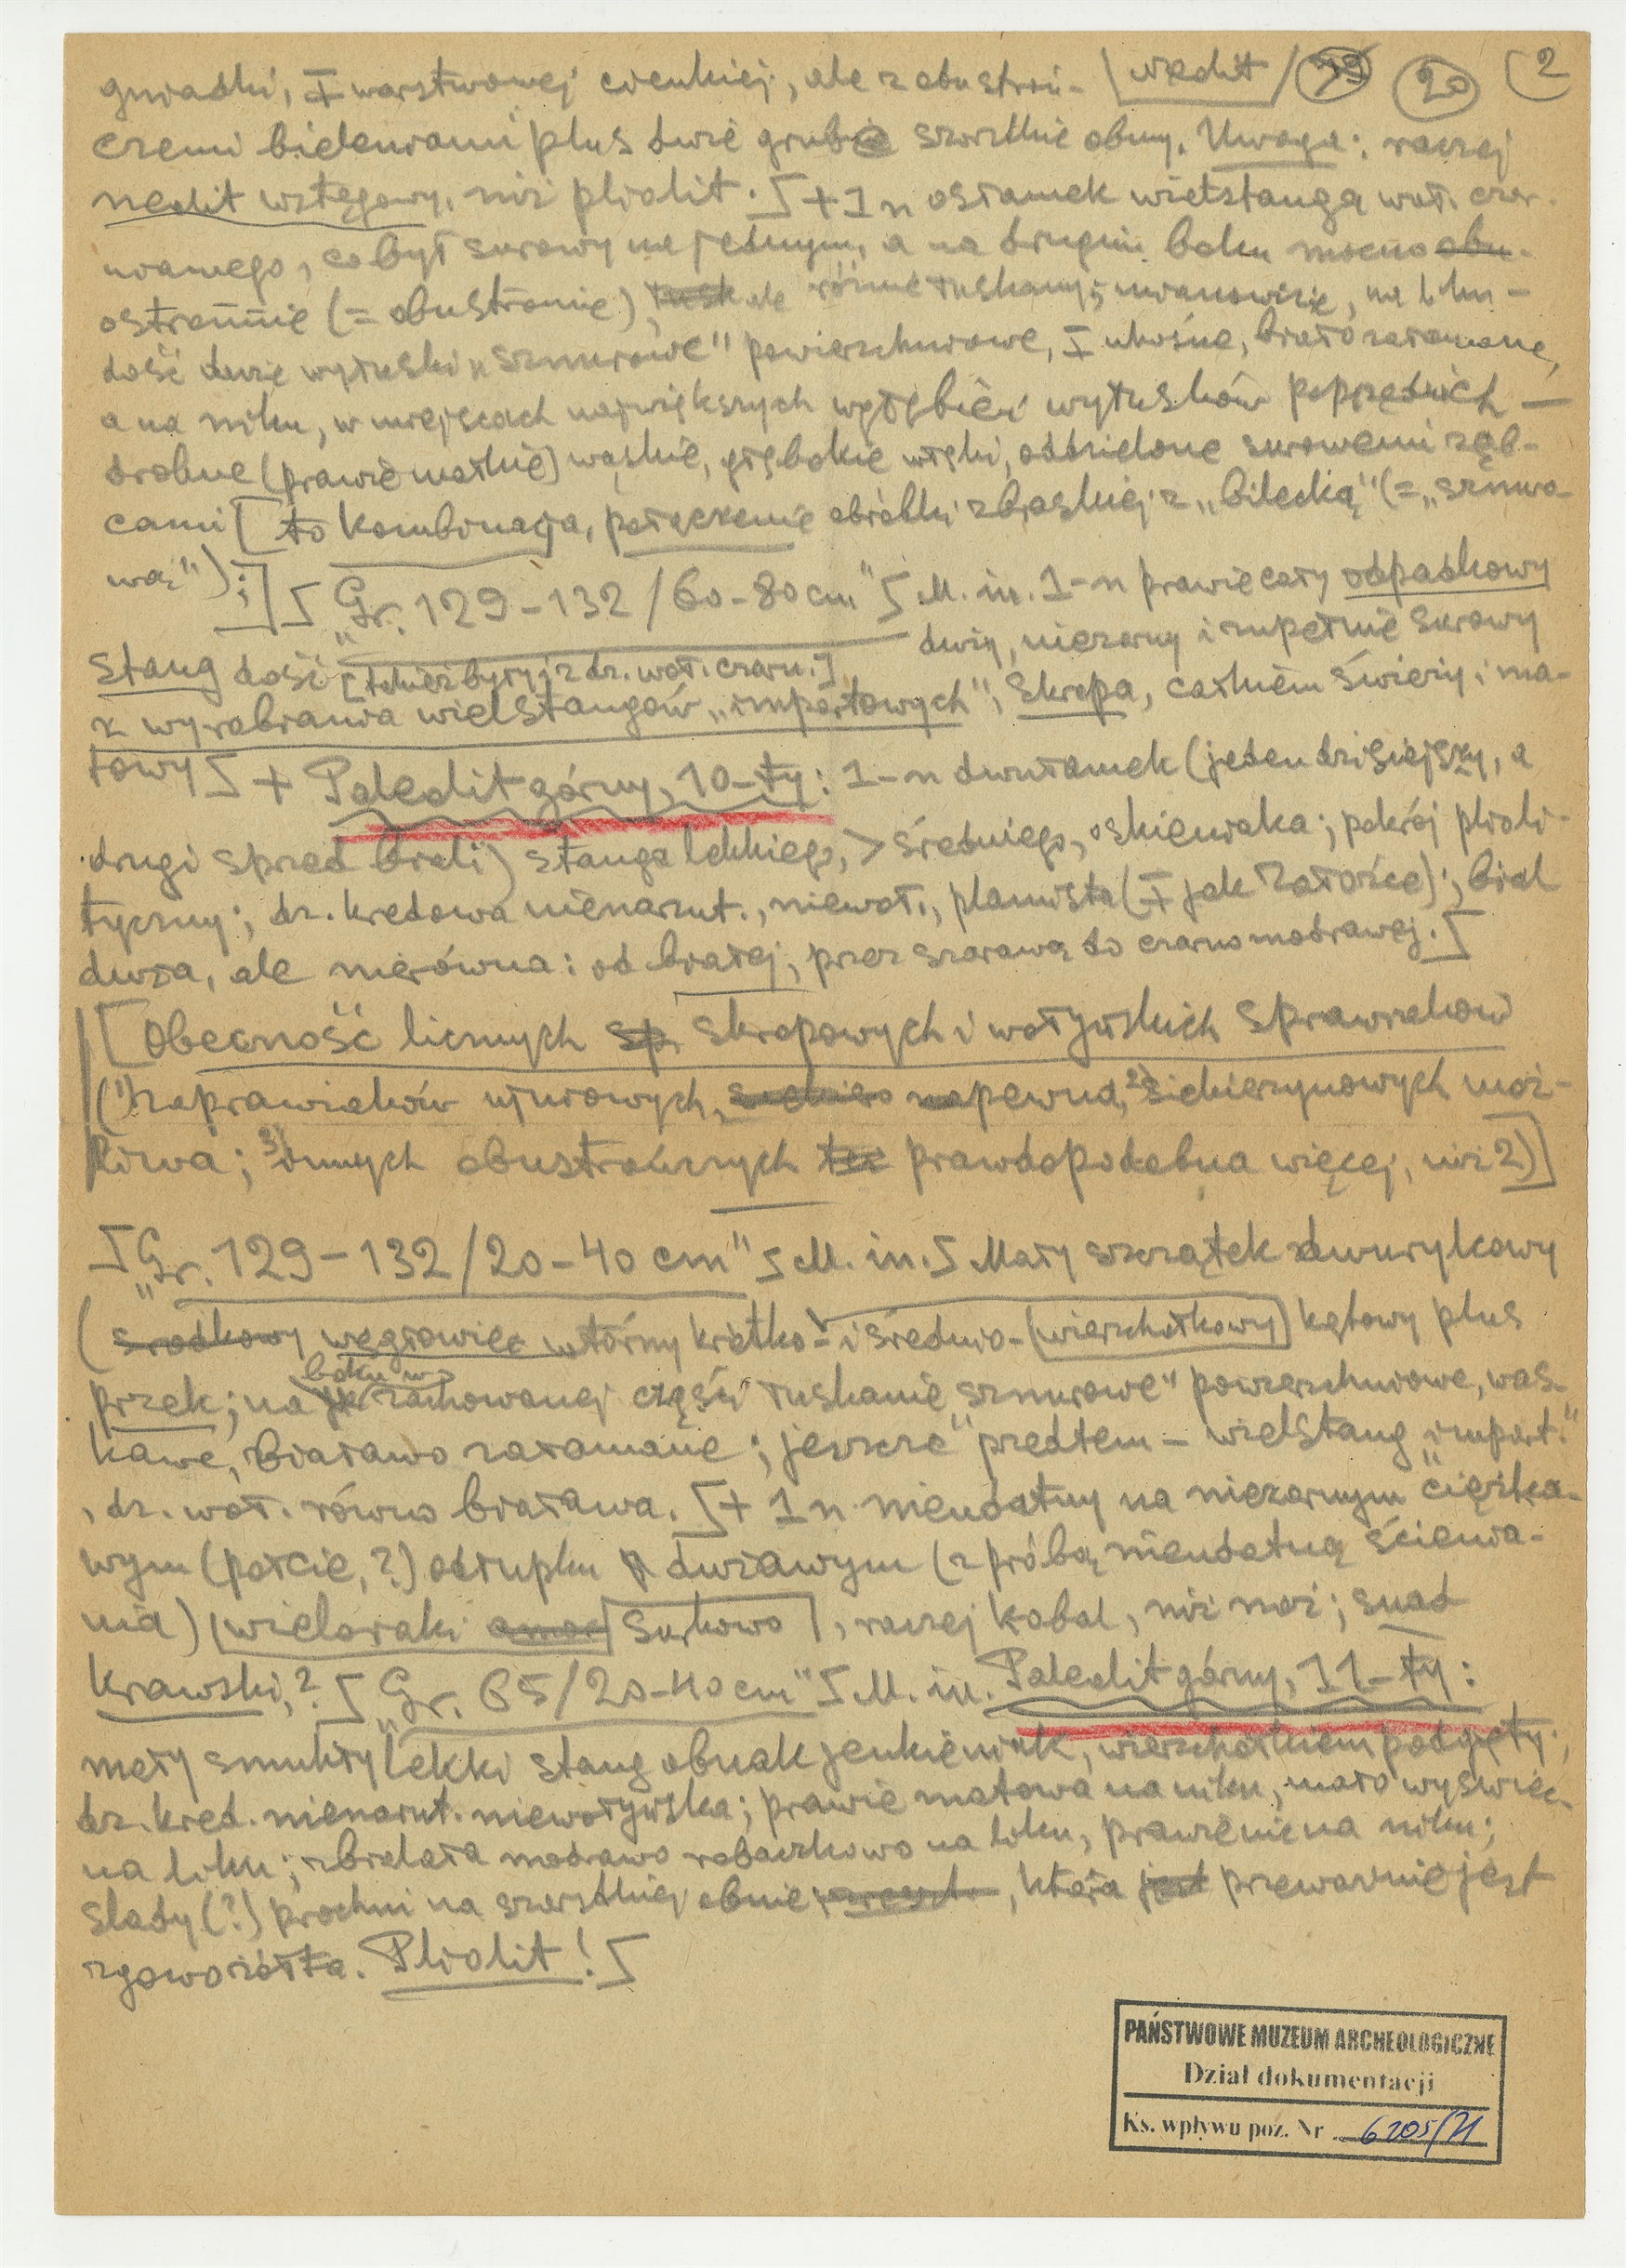 gniadki, ± warstwowej cienkiej, ale z obustroń- 20 2
czemi bielewiami plus dwie grubie szorstkie obmy. Uwaga: raczej
neolit wstęgowy, niż pliolit. ∫ + 1 n osłamek wielstanga woł. czer-
wianego, co był surowy na jednym, a na drugim boku mocno obu-
ostronnie (= obustronnie), ale różnie łuskany; mianowicie, na liku -
dość duże wyłuski „sznurowe" powierzchniowe, ± ukośne, biało załamane,
a na niku, w miejscach największych wgłębień wyłusków poprzednich —
drobne (prawie małkie) wąskie, głębokie wręki, oddzielone surowemi ząb-
cami [to kombinacja, połączenie obróbki zbraskiej z „bilecką" (= „sznuro-
wą");] ∫ „Gr. 129-132/60-80 cm" ∫ M. in. 1-n prawie cały odpadkowy
stang dość [także były j z dz. woł. czarn.] duży, niezarny i zupełnie surowy
z wyrabiania wielstangów „importowych", skrapa, całkiem świeży i ma-
towy ∫ + Paleolit górny, 10-ty: 1-n dwułamek (jeden dzisiejszy, a
drugi sprzed bieli) stanga lekkiego, > średniego, okieniaka; pokrój plioli-
tyczny; dz. kredowa nienarzut., niewoł., plamista (± jak Załoźce); biel
duża, ale nierówna: od białej, przez szarawą do czarnomodrawej. ∫
[Obecność licznych sp. skrapowych i wołyńskich sprawniaków
(1) naprawiaków wiurowych, napewna, 2) siekierzynowych moż-
liwa; 3) innych obustronnych prawdopodobna więcej, niż 2)]
∫ „Gr. 129-132/20-40 cm" ∫ M. in. ∫ Mały szczątek dwurylcowy
(środkowy węgłowiec wtórny krótko- i średnio- (wierzchołkowy) kątowy plus
przek; na boku w zachowanej części łuskanie sznurowe" powierzchniowe, wąs-
kawe, białawo załamane; jeszcze przedtem - wielstang „import."
, dz. woł. równo biaława. ∫ + 1 n nieudatny na niezarnym ciężka-
wym (połcie, ?) odłupku dużawym (z próbą nieudatną ścienia-
nia) (wieloraki surowo), raczej kobal, niż noż; snad
krawski,? ∫ „Gr. 65/20-40 cm" ∫ M. in. Paleolit górny, 11-ty:
mały smukły lekki stang obnak jenkieniak, wierzchołkiem podgięty;
dz. kred. nienarzut. niewołyńska; prawie matowa na niku, mało wyświec-
na liku; zbielała modrawo robaczkowo na liku, prawie nie na niku;
ślady (?) prochni na szorstkiej obmie, która jest przeważnie jest
zgowożółta. Pliolit! ∫
PAŃSTWOWE MUZEUM ARCHEOLOGICZNE
Dział dokumentacji
Ks. wpływu poz. Nr 6205/71